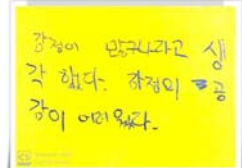 감정이 많구나라고 생
각 했다. 감정의 공
감이 어려웠다.